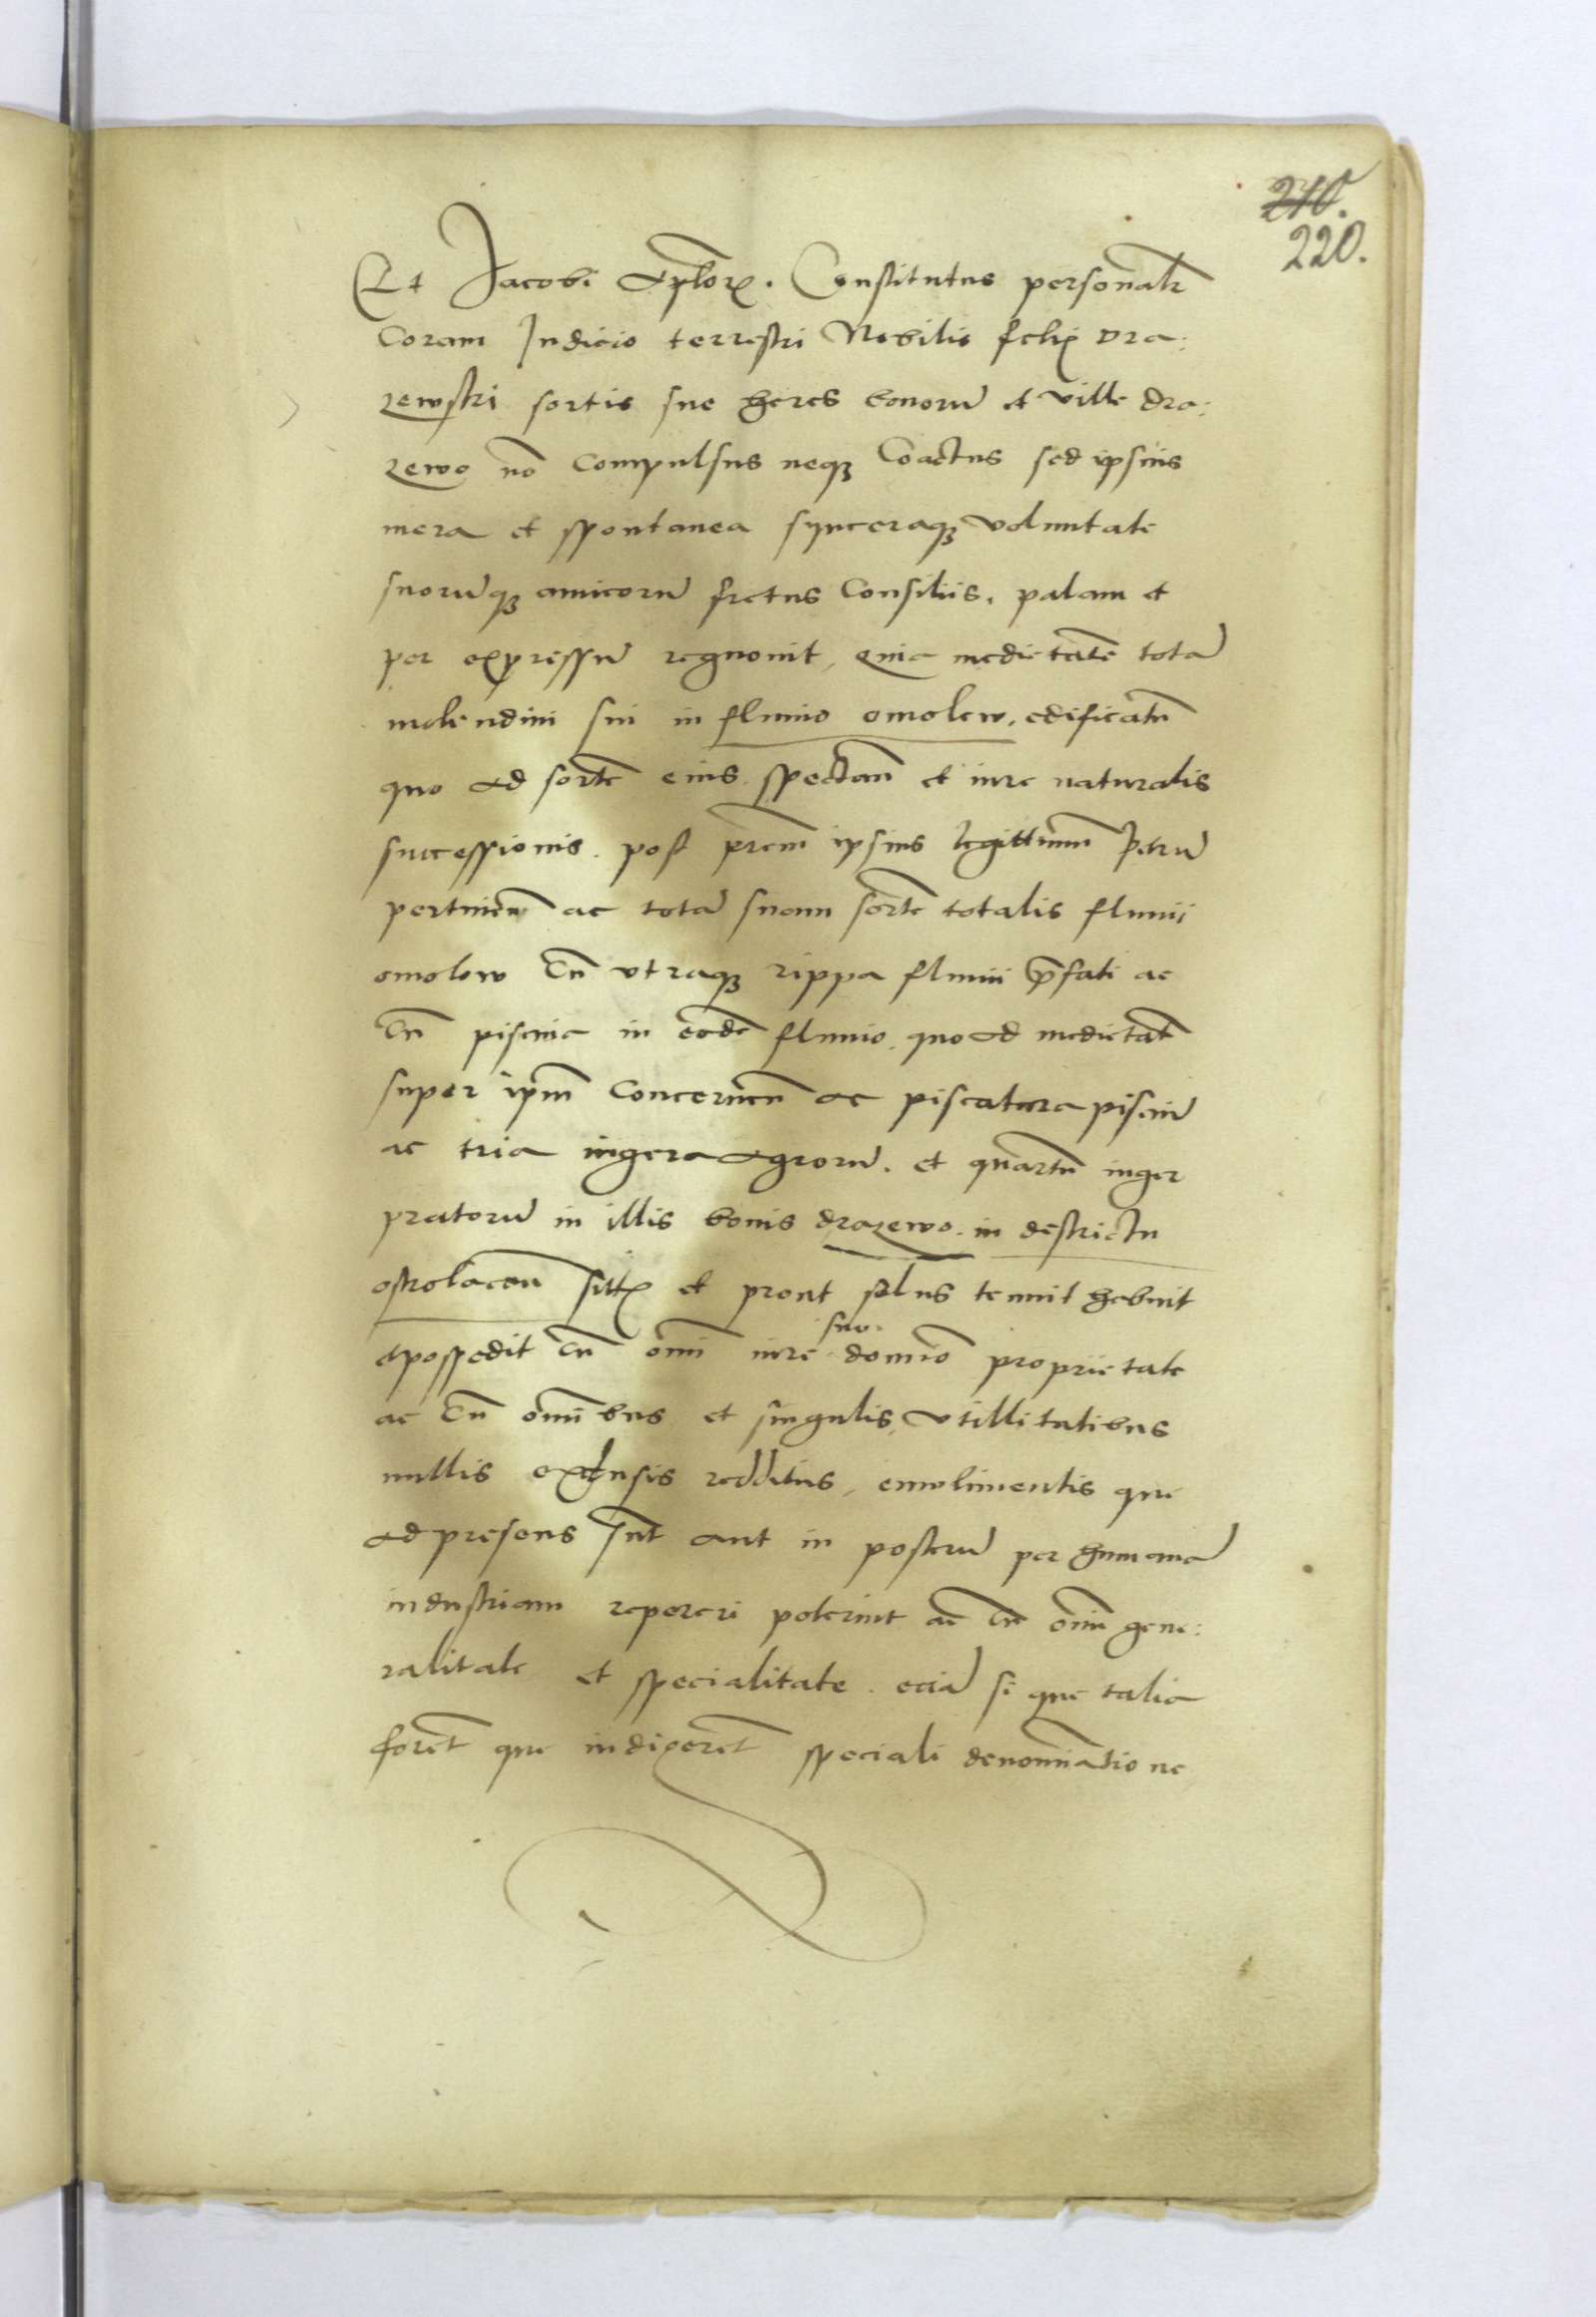 210.
220.
Et Jacobi Aplorꝝ. Constitutus personalr
Coram Judicio terrestri Nobilis felix Dra:
zewski sortis sue heres bonorū et ville dra:
zewo nō Compulsus neqꝫ Coactus sed ipsius
mera et spontanea synceraqꝫ voluntate
suorūqꝫ amicorū fretus Consiliis. palam et
per expressū regnouit, quia medietatē totā
molendini sui in fluuio omolew, edificatū
quo ad sortē eius spectan̄ et iure naturalis
successionis. post prēm ipsius legittimum Petrū
pertinen̄ ac totā suam sortē totalis fluuii
omolew cū vtraqꝫ rippa fluuii p̄fati ac
cū piscina in eodē fluuio. quo ad medietatē
super ipm̄ Concernen̄ ac piscatura piscium
ac tria iugera agrorū. et quartū iuger
pratorū in illis bonis drazewo. in destrictu
ostrolacen̄ sittꝭ et prout solus tenuit habuit
suo.
et possedit cū omī iure domīo proprietate
ac cū omībus et singulis, vtillitatibus
nullis exclusis redditus, emolimentis que
ad presens sunt aut in posterū per humanā
industriam reperiri poterint ac cū omī gene:
ralitate et specialitate. eciā si que talia
forēt que indigerēt speciali denominatione